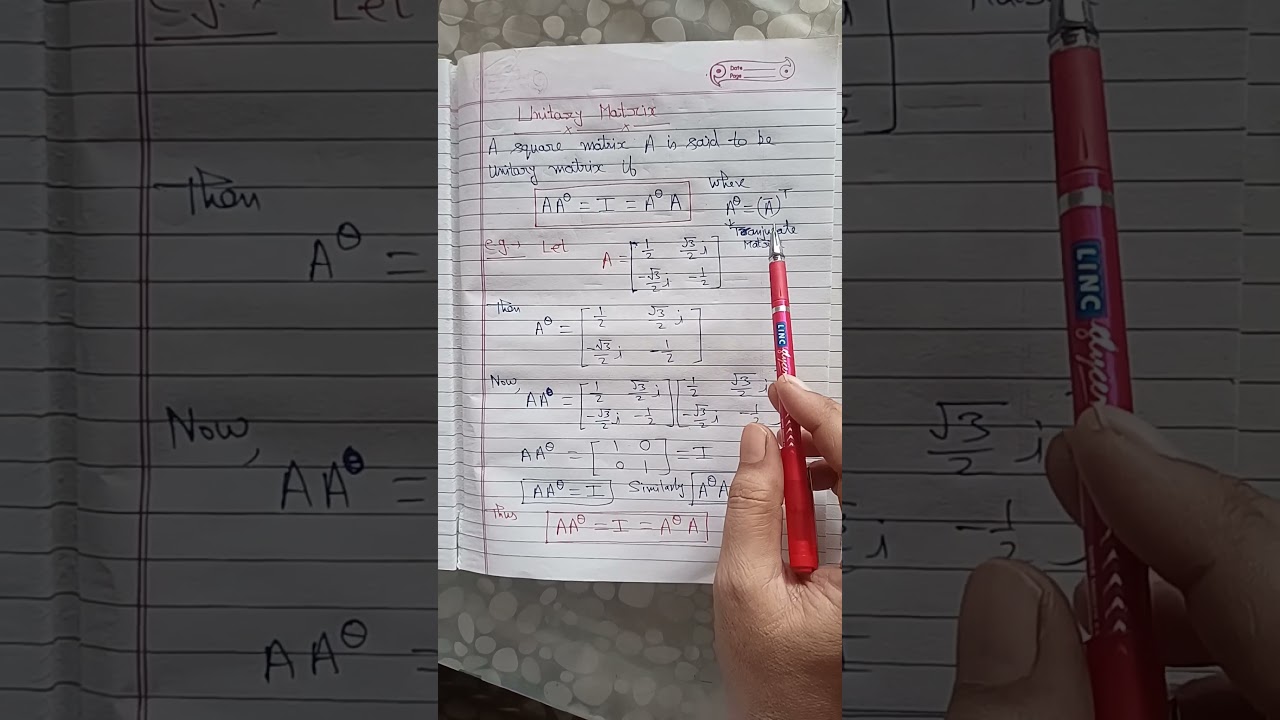 Date
Page
Unitary Matrix
A square matrix A is said to be
Unitary matrix if
AA^θ = I = A^θ A
where
A^θ = (A̅)^T
e.g., Let A = [1/2 √3/2 i
-√3/2 i -1/2]
Then
A^θ = [1/2 √3/2 i
-√3/2 i -1/2]
Now, AA^θ = [1/2 √3/2 i
-√3/2 i -1/2] [1/2 √3/2 i
-√3/2 i -1/2
AA^θ = [1 0
0 1] = I
AA^θ = I Similarly A^θ A
Thus AA^θ = I = A^θ A
LINC
e.g., Let
Then
A^θ =
Now,
AA^θ =
AA^θ =
LINC
√3/2 i
i -1/2